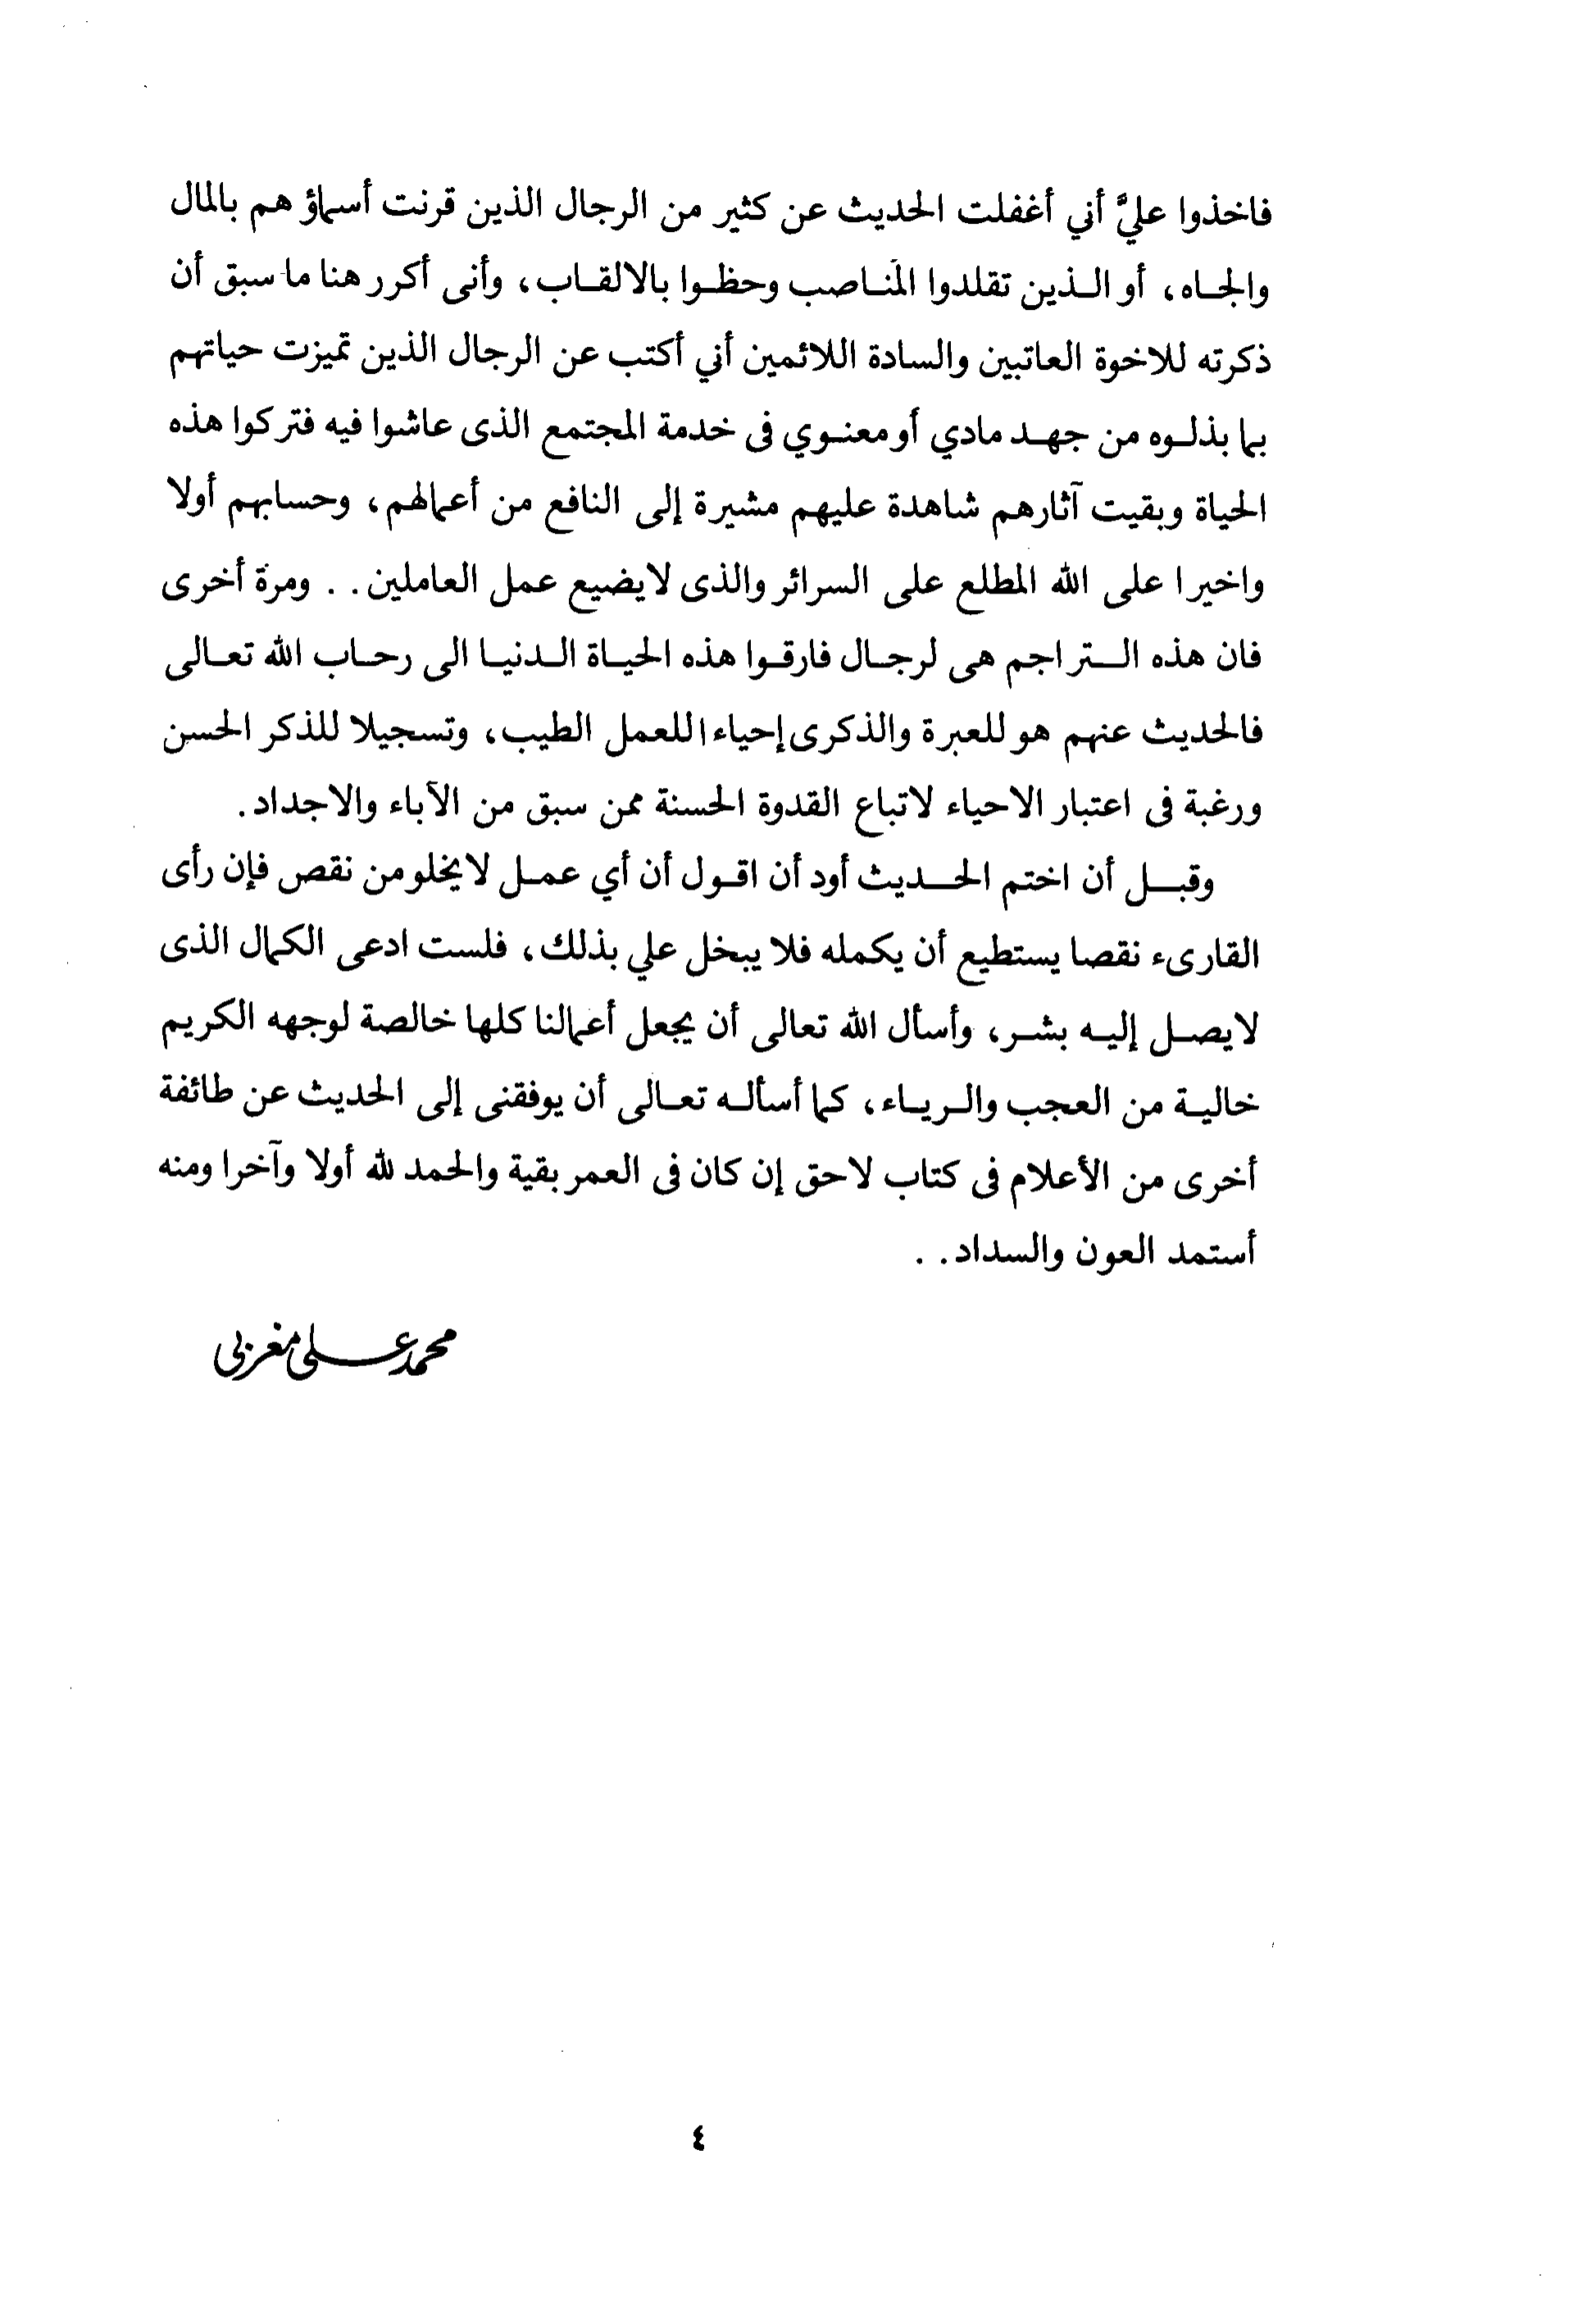 فاخذوا عليَّ أني أغفلت الحديث عن كثير من الرجال الذين قرنت أسماؤهم بالمال
والجاه، أو الذين تقلدوا المناصب وحظوا بالالقاب، وأنى أكرر هنا ما سبق أن
ذكرته للاخوة العاتبين والسادة اللائمين أني أكتب عن الرجال الذين تميزت حياتهم
بما بذلوه من جهد مادي أو معنوي فى خدمة المجتمع الذى عاشوا فيه فتركوا هذه
الحياة وبقيت آثارهم شاهدة عليهم مشيرة إلى النافع من أعمالهم، وحسابهم أولا
واخيرا على الله المطلع على السرائر والذى لايضيع عمل العاملين . . ومرة أخرى
فان هذه التراجم هى لرجال فارقوا هذه الحياة الدنيا الى رحاب الله تعالى
فالحديث عنهم هو للعبرة والذكرى إحياءا للعمل الطيب، وتسجيلا للذكر الحسن
ورغبة فى اعتبار الاحياء لاتباع القدوة الحسنة ممن سبق من الآباء والاجداد.
وقبل أن اختم الحديث أود أن اقول أن أي عمل لايخلو من نقص فإن رأى
القارىء نقصا يستطيع أن يكمله فلا يبخل علي بذلك، فلست ادعى الكمال الذى
لايصل إليه بشر، وأسأل الله تعالى أن يجعل أعمالنا كلها خالصة لوجهه الكريم
خالية من العجب والرياء، كما أسأله تعالى أن يوفقنى إلى الحديث عن طائفة
أخرى من الأعلام فى كتاب لاحق إن كان فى العمر بقية والحمد لله أولا وآخرا ومنه
أستمد العون والسداد . .
محمد علي مغربي
٤